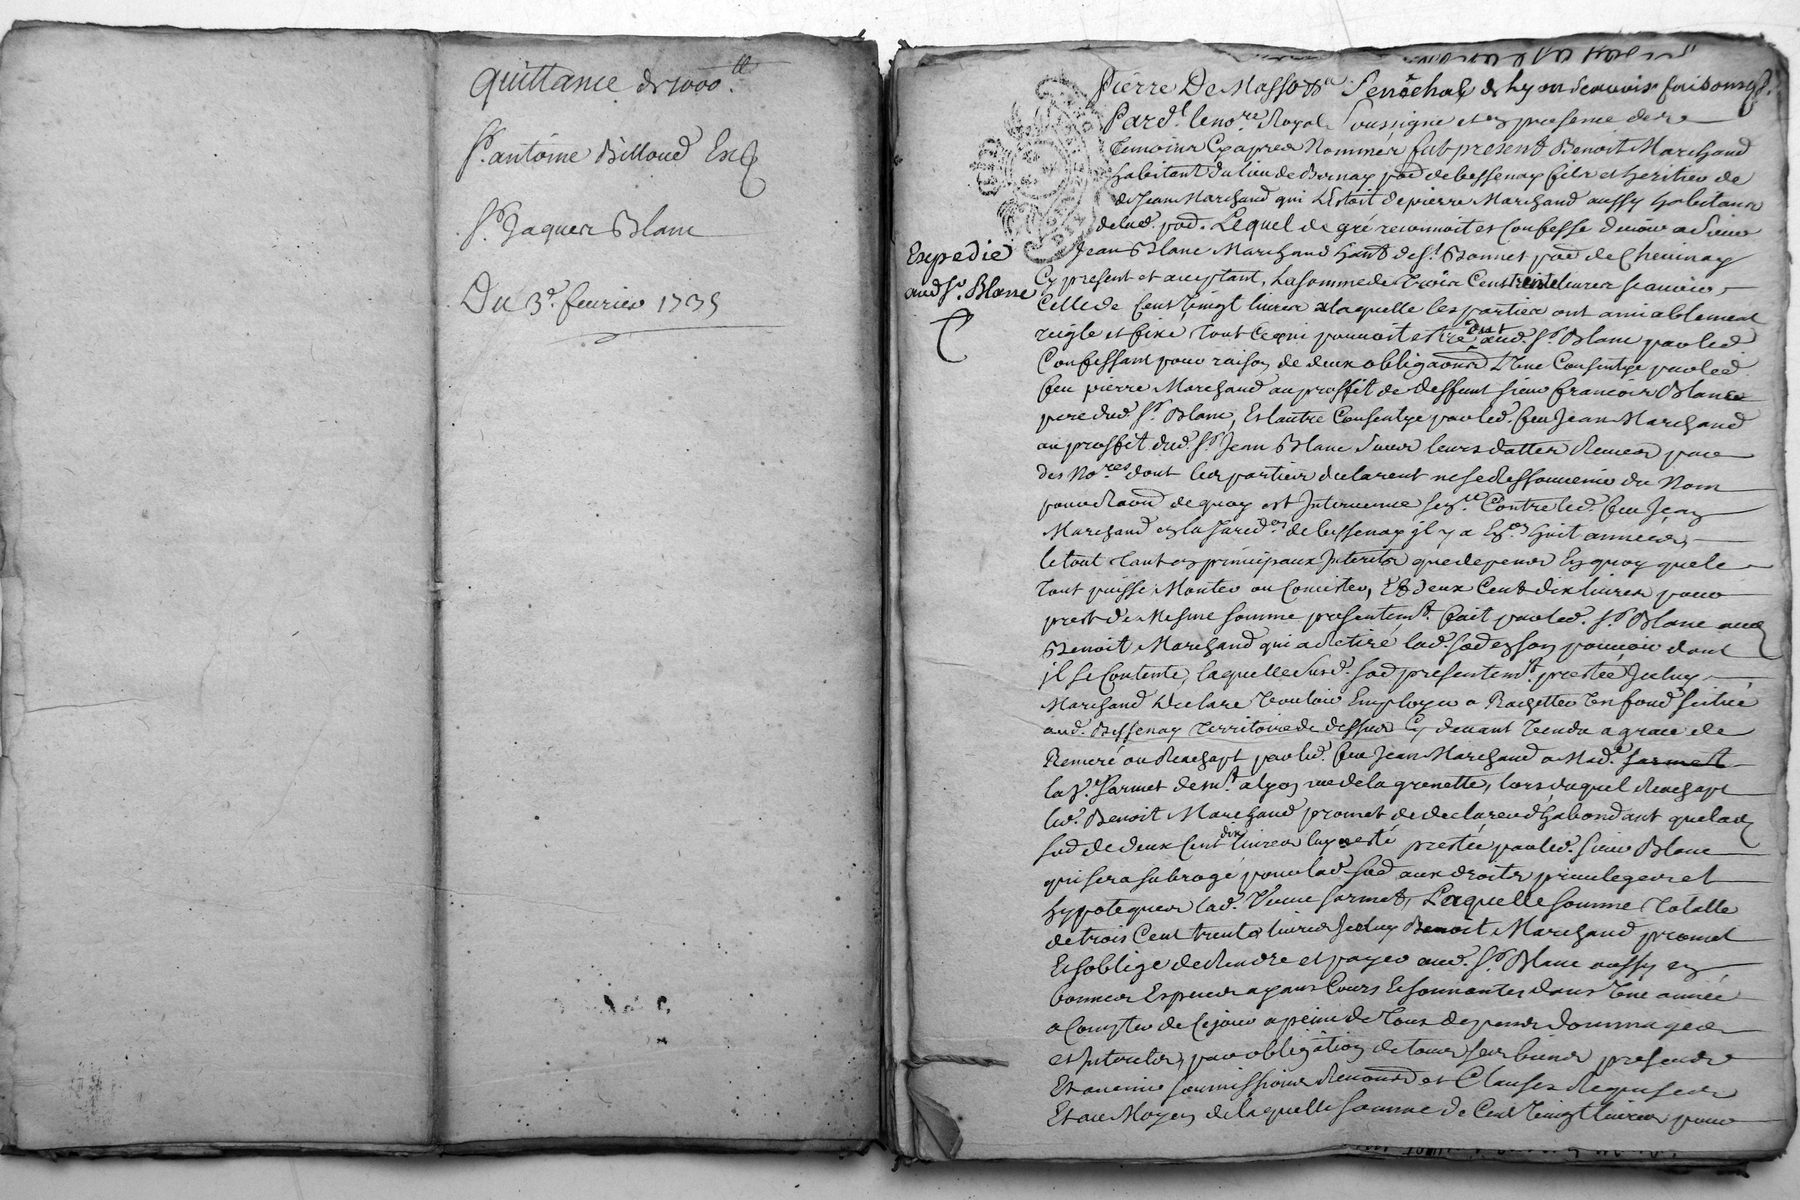 quittance de 1000.ᵗᵗ
Sʳ. antoine Billoud
Sʳ. Jaques Blanc
Du 3ᵉ. fevrier 1735
Pierre De Masso Senechal de Lyon scavoir faisons q
Pard.ᵗ le noʳᵉ Royal soussigné et en presence de
temoins cy apres nommes fut present Benoit Marchand
habitant du lieu de Bernay de bessenay fils et heritier de
de Jean Marchand qui l'Estoit de pierre Marchand aussy habitant
Lequel de gré reconnoit et confesse devoir a Sieur
Jean Blanc Marchand de Sᵗ. Bonnet de Chevinay
Expedié
aud Sʳ. Blanc
Cy present et acceptant, La somme de trois Cent trente livres scavoir
Celle de Cent vingt livres a laquelle les parties ont amiablement
reigle et fixé tout ce qui pouvoit estre dut aud. Sʳ. Blanc par led
Confessant pour raison de deux obligaons L'une Consentye par led
feu pierre Marchand au proffit de deffunt sieur francois Blanc
pere dud. Sʳ. Blanc, Et l'autre Consentye par led. feu Jean Marchand
au proffit dud. Sʳ. Jean Blanc sieur leurs dattes Receues par
des Noʳᵉˢ dont les parties declarent ne se ressouvenir du Nom
de quoy est Intervenue Contre led. feu Jean
Marchand en la de bessenay il y a huit années
le tout tant en principaux Interets que depens En quoy que le
tout puisse Monter ou Concister, Et deux Cent dix livres pour
prest de Mesme somme presentemᵗ. fait par led. Sʳ. Blanc aud
Benoit Marchand qui a retiré lad. en son pouvoir dont
il se Contente, laquelle susd. presentemᵗ. prestée Iceluy
Marchand Declare vouloir Employer a Rachetter un fond scitué
aud. Bessenay territoire de dessus Cy devant vendu a grace de
Remeré ou Reachapt par led. feu Jean Marchand a Mad.ᵉ
la Vᵉ. Sarmet a lyon rue de la grenette, lors duquel Reachapt
led. Benoit Marchand promet de declarer d'habondant que lad
de deux Cent dix livres luy a esté prestée par led. sieur Blanc
qui sera subrogé pour lad. aux droits privileges et
hypoteques lad. Veuve Sarmet, Laquelle somme totalle
de trois Cent trente livres Iceluy Benoit Marchand promet
Et soblige de Rendre et payer aud. Sʳ. Blanc aussy en
bonnes Especes ayans Cours Et sonnantes dans Une année
a Compter de Ce jour a peine de tous depens dommages
et Interets, par obligation de tous ses biens presents
Et avenir soumissions Renonᵒⁿˢ et Clauses Requises
Et au Moyen de laquelle somme de Cent vingt livres pour